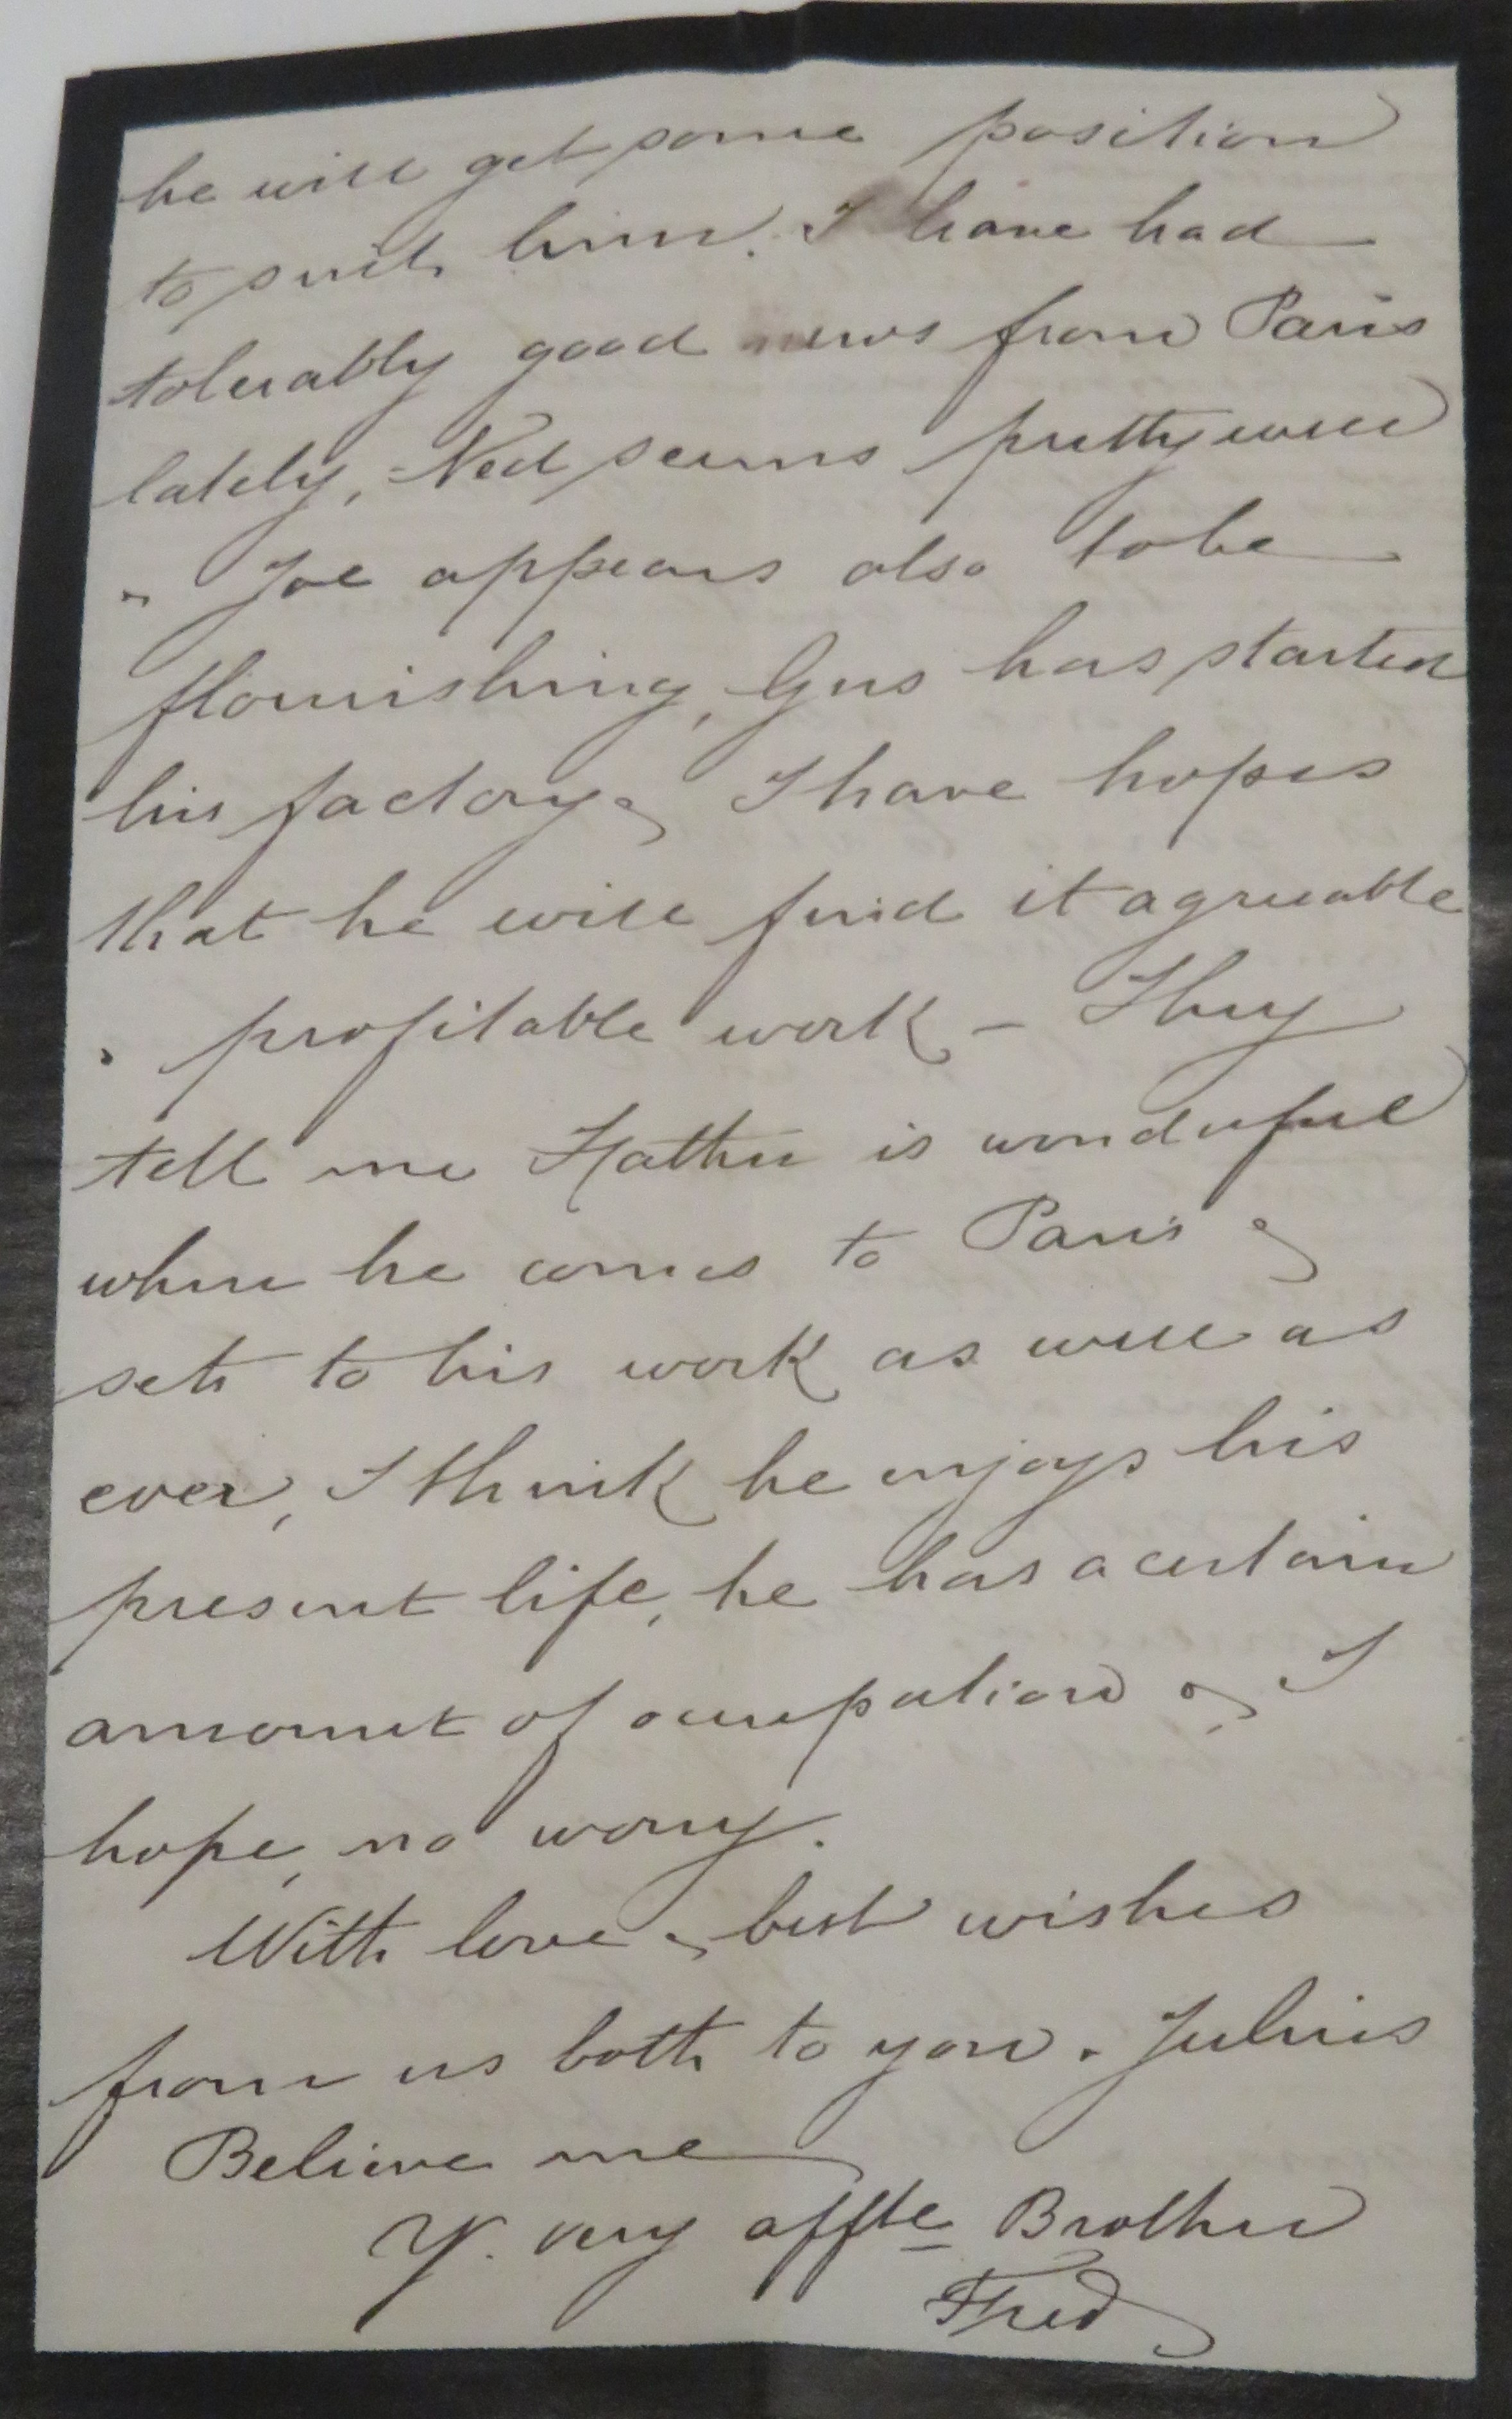 he will get some position
to suit him. I have had
tolerably good news from Paris
lately, Ned seems pretty well
& Joe appears also to be
flourishing, Gus has started
his factory & I have hopes
that he will find it agreeable
& profitable work – They
tell me Father is wonderful
when he comes to Paris &
sets to his work as well as
ever, I think he enjoys his
present life, he has a certain
amount of occupation & I
hope, no worry.
With love & best wishes
from us both to you & Julius
Believe me
Yr. very affte Brother
Fred